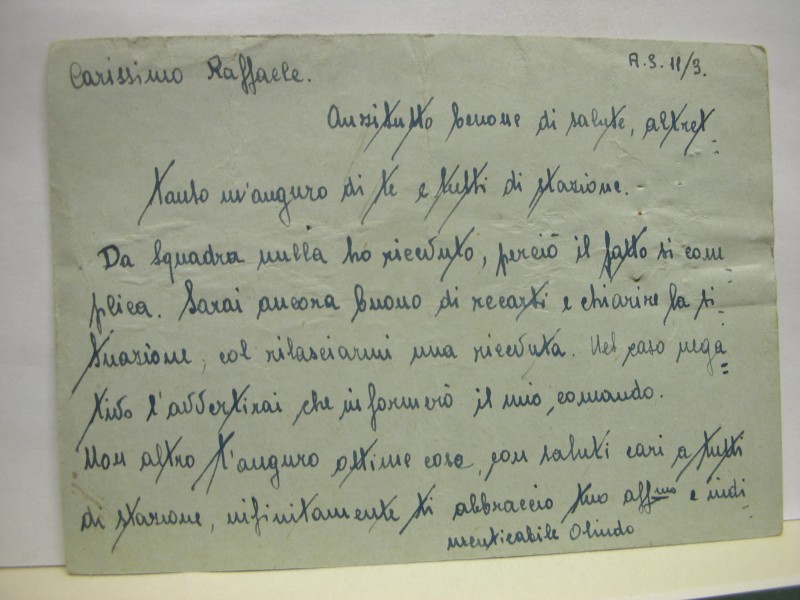 Carissimo Raffaele.
R.S. 11/3.
Anzitutto benone di salute, altret=
tanto m'auguro di te e tutti di stazione.
Da Squadra nulla ho ricevuto, perciò il fatto si com=
plica. Sarai ancora buono di recarti e chiarire la si=
tuazione, col rilasciarmi una ricevuta. Nel caso nega=
tivo l'avvertirai che informerò il mio comando.
Non altro t'auguro ottime cose, con saluti cari a tutti
di stazione, infinitamente ti abbraccio tuo affmo e indi=
menticabile Olindo